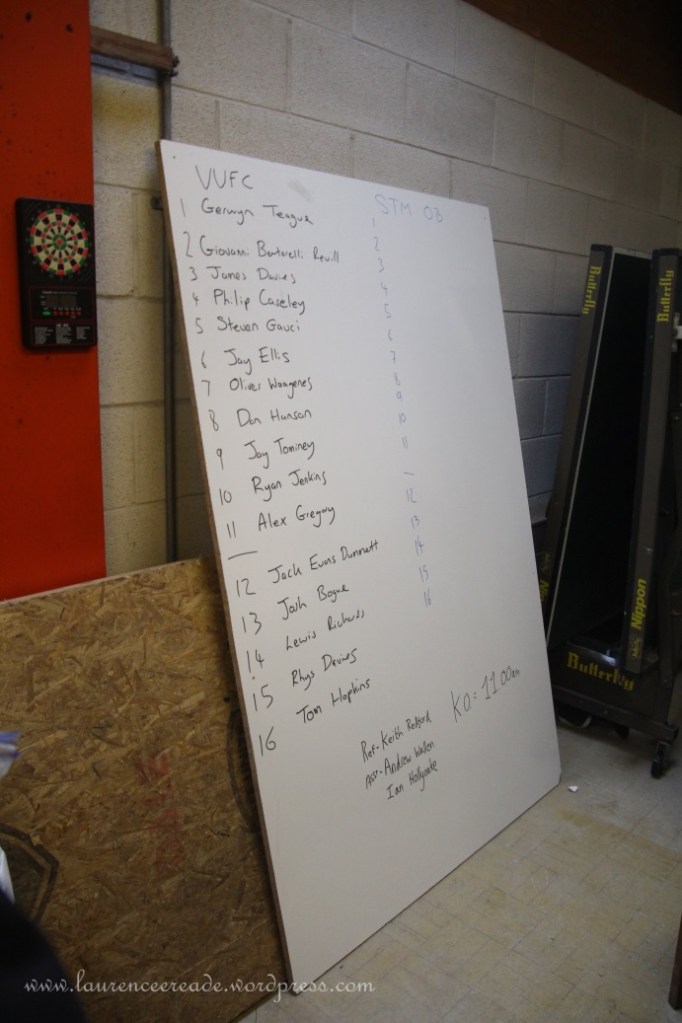 VUFC
1 Gerwyn Teague
2 Giovanni Bertorelli Revill
3 James Davies
4 Philip Caseley
5 Steven Gauci
6 Jay Ellis
7 Oliver
8 Dan Hanson
9 Jay Tominey
10 Ryan Jenkins
11 Alex Gregory
—
12 Jack Evans Dunnett
13 Josh Bogue
14 Lewis Richards
15 Rhys Davies
16 Tom Hopkins
STM OB
1
2
3
4
5
6
7
8
9
10
11
—
12
13
14
15
16
KO = 11.00am
Ref - Keith Redford
Ass - Andrew
Ian Hollyoake
Butterfly
Butterfly
Nippon
Butterfly
www.laurenceereade.wordpress.com